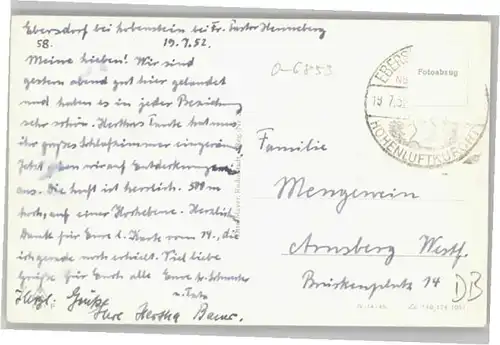 Ebersdorf bei Lobenstein bei Fr. Pastor Henneberg
58. 19.7.52.
Meine Lieben! Wir sind
gestern abend gut hier gelandet
und haben es in jeder Beziehung
sehr schön. Herthas Tante hat uns
ihr großes Schlafzimmer eingeräumt
Jetzt gehen wir auf Entdeckungen
aus. Die Luft ist herrlich. 500 m
hoch, auf einer Hochebene. Herzlich
Dank für Eure l. Karte vom 14., die
ich gerade noch erhielt. Viel liebe
Grüße für Euch alle Eure
u. Tante
Herzl. Grüße
Ihre Hertha
0-6853
EBERS
19.7.52
HÖHENLUFTKURORT
Fotoabzug
Familie
Mengewein
Arnsberg Westf.
Brückenplatz 14
DB